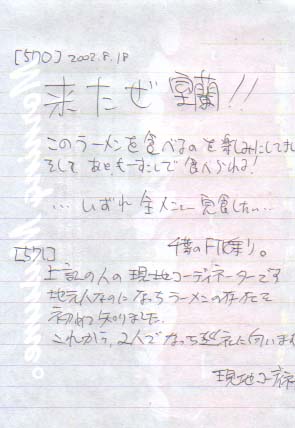 [570] 2002.8.18
来たぜ 室蘭!!
このラーメンを食べるのを楽しみにしてた
そして あともー少しで 食べられる!
…いずれ 全メニュー 完食したい…
千葉のFTR乗り。
[571]
上記の人の現地コーディネーターです
地元人なのに なっちラーメンの存在を
初めて知りました。
これから、2人でなっち巡礼に向います
現地コーデ